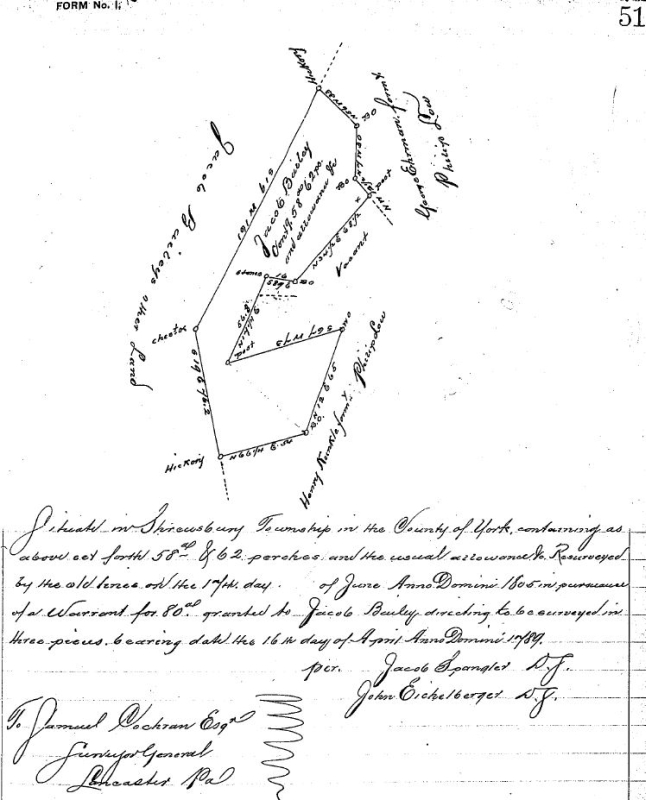 FORM No. 1.
51
Hickory
BO
George Ehrman form.
Philip Low
Jacob Baileys other Land
Jacob Bailey
Cont'g 58 as 62 ps.
and allowance &c
post
BO
Vacant
stone
BO
chestnut
post
BO
Philip Low
Henry Kunkle form.
BO
Hickory
Situate in Shrewsbury Township in the County of York, containing as
above set forth 58 as & 62 perches and the usual allowance &c. Resurveyed
by the old lines on the 17th day of June Anno Domini 1805 in pursuance
of a Warrant for 80 as granted to Jacob Bailey directing to be surveyed in
three pieces. bearing date the 16th day of April Anno Domini 1789.
per. Jacob Spangler D.S.
John Eichelberger D.S.
To Samuel Cochran Esqr
Surveyor General
Lancaster Pa